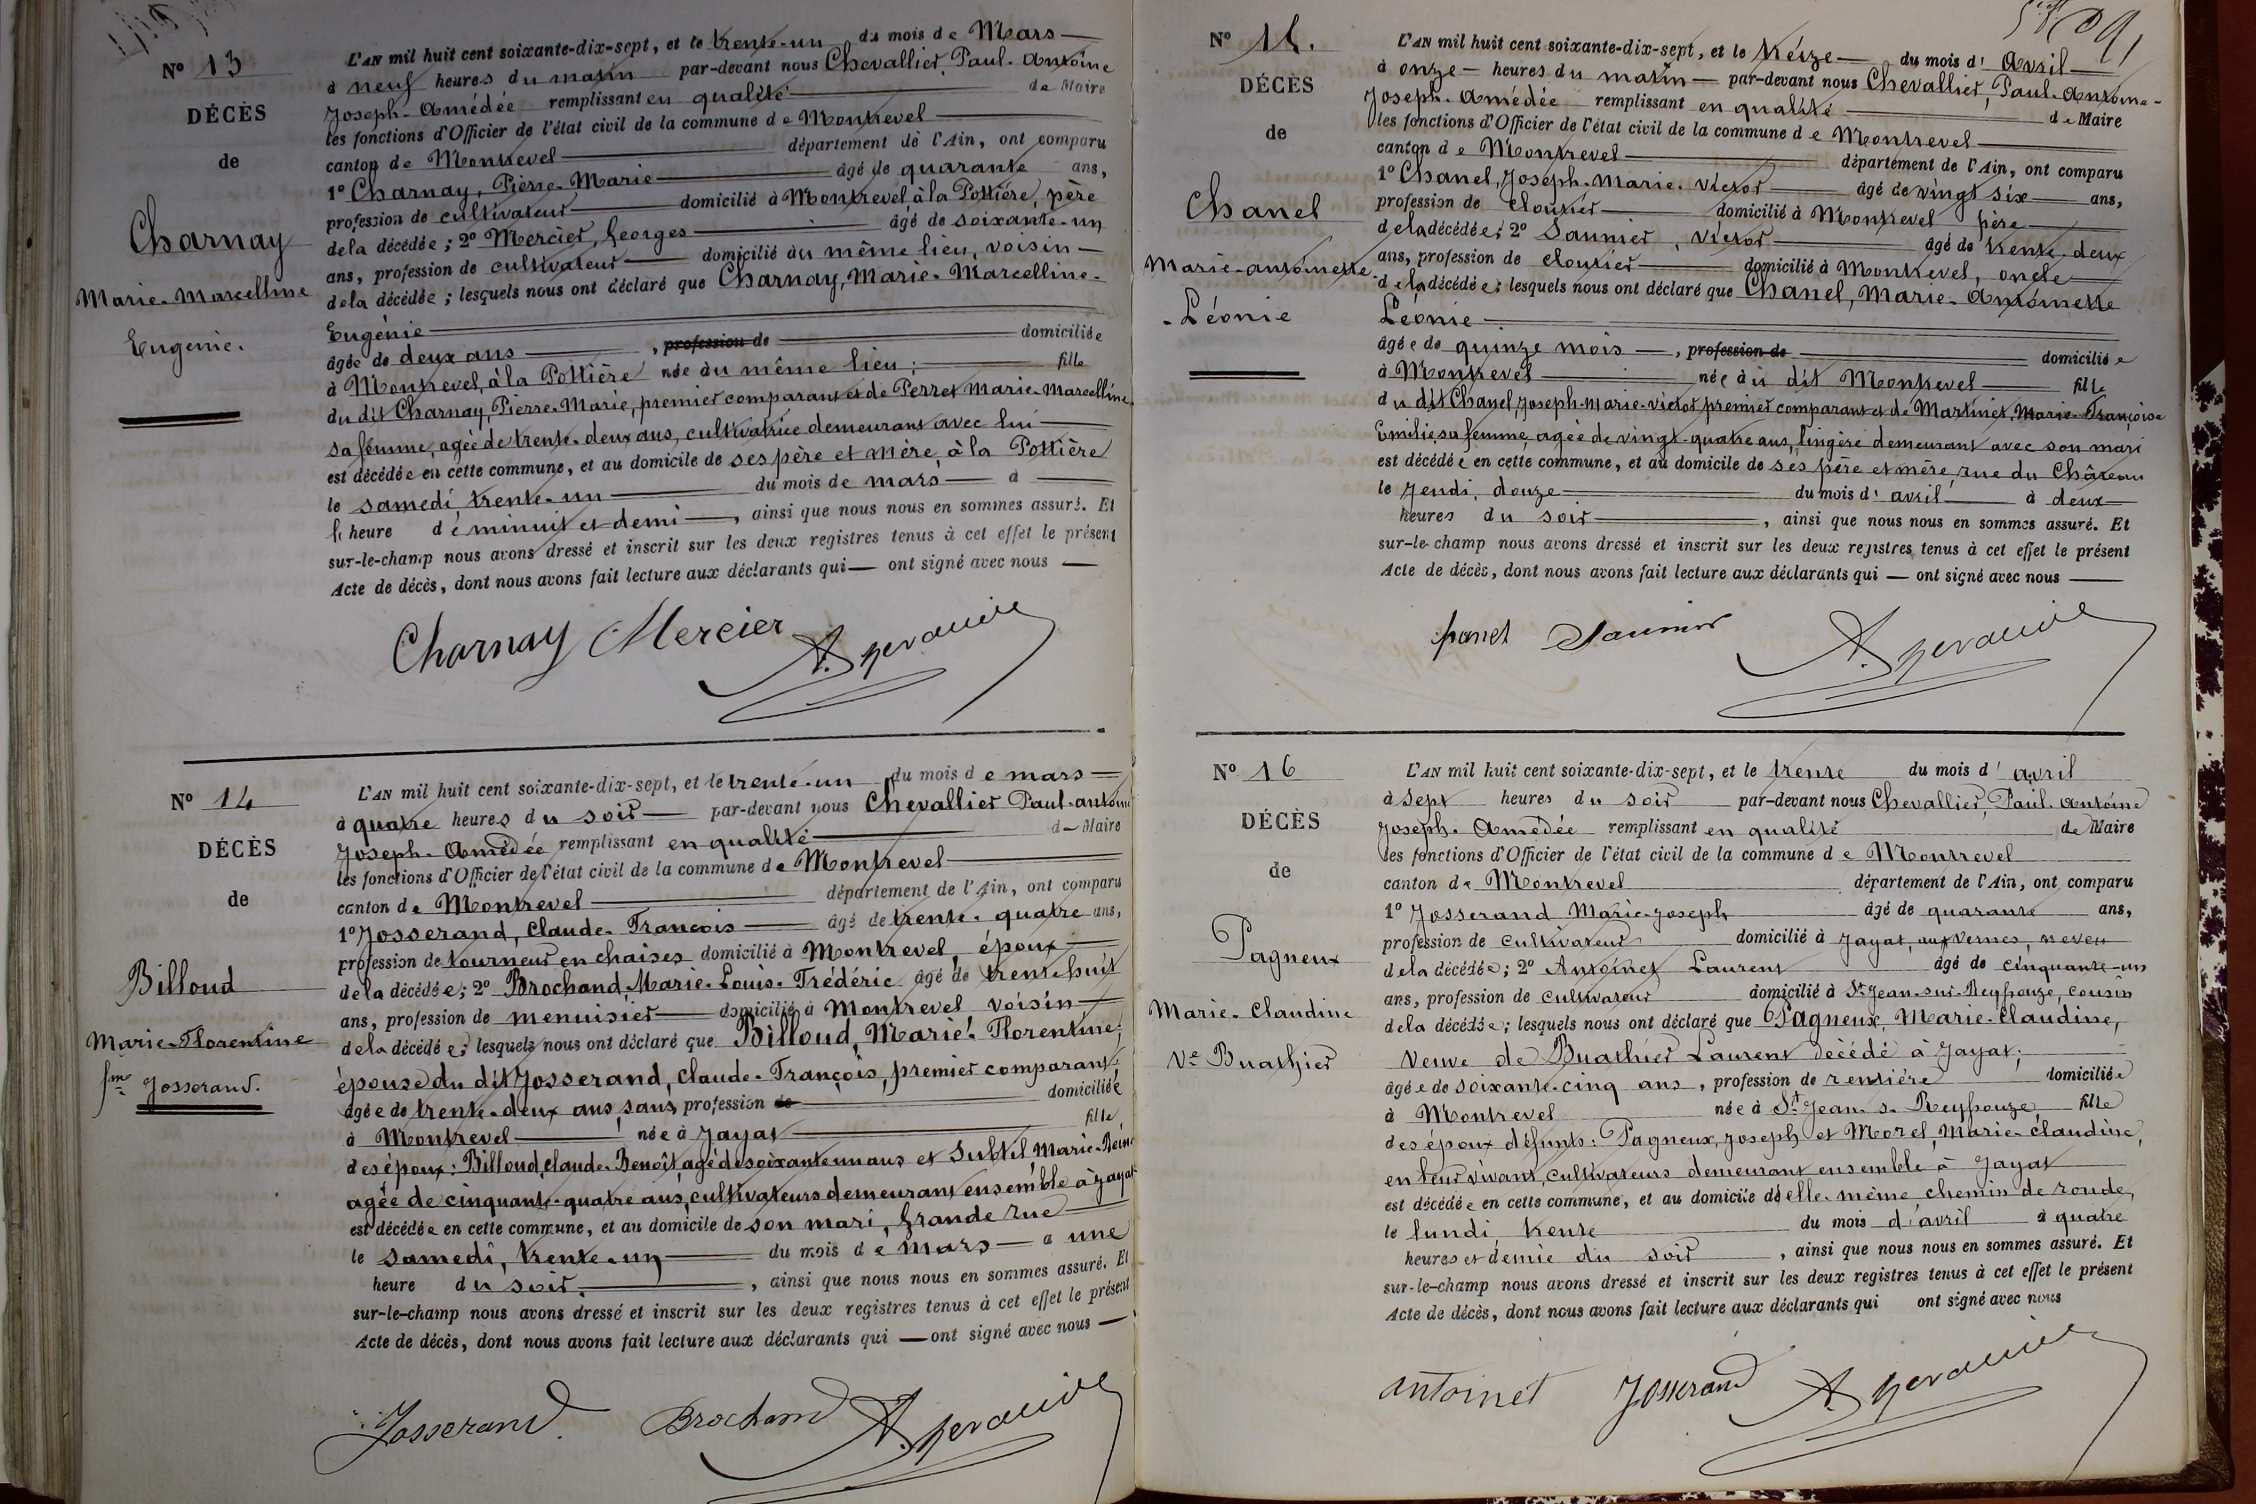 Nº 13
DÉCÈS
de
Charnay
Marie-Marcelline
Eugénie.
L'AN mil huit cent soixante-dix-sept, et le trente-un du mois de Mars
à neuf heures du matin par-devant nous Chevallier, Paul-Antoine
Joseph-Amédée remplissant en qualité de Maire
les fonctions d'Officier de l'état civil de la commune de Montrevel
canton de Montrevel département de l'Ain, ont comparu
1º Charnay, Pierre-Marie âgé de quarante ans,
profession de cultivateur domicilié à Montrevel, à la Pottière, père
de la décédée; 2º Mercier, Georges âgé de soixante-un
ans, profession de cultivateur domicilié au même lieu, voisin
de la décédée; lesquels nous ont déclaré que Charnay, Marie-Marcelline-
Eugénie
âgée de deux ans, profession de domiciliée
à Montrevel, à la Pottière née au même lieu; fille
du dit Charnay, Pierre-Marie, premier comparant et de Perret Marie-Marcelline
sa femme, agée de trente-deux ans, cultivatrice demeurant avec lui
est décédée en cette commune, et au domicile de ses père et mère, à la Pottière
le samedi, trente-un du mois de mars à
l'heure de minuit et demi, ainsi que nous nous en sommes assuré. Et
sur-le-champ nous avons dressé et inscrit sur les deux registres tenus à cet effet le présent
Acte de décès, dont nous avons fait lecture aux déclarants qui ont signé avec nous
Charnay Mercier A. Chevallier
Nº 14
DÉCÈS
de
Billoud
Marie-Florentine
fme Josserand.
L'AN mil huit cent soixante-dix-sept, et le trente-un du mois de mars
à quatre heures du soir par-devant nous Chevallier Paul-antoine
Joseph-Amédée remplissant en qualité de Maire
les fonctions d'Officier de l'état civil de la commune de Montrevel
canton de Montrevel département de l'Ain, ont comparu
1º Josserand, Claude-François âgé de trente-quatre ans,
profession de tourneur en chaises domicilié à Montrevel, époux
de la décédée; 2º Brochand, Marie-Louis-Frédéric âgé de trente huit
ans, profession de menuisier domicilié à Montrevel, voisin
de la décédée; lesquels nous ont déclaré que Billoud, Marie-Florentine,
épouse du dit Josserand, Claude-François, premier comparant;
âgée de trente-deux ans, sans profession de domiciliée
à Montrevel née à Jayat fille
des époux: Billoud, Claude-Benoît, agé de soixante un ans et Subtil Marie-Reine
agée de cinquante-quatre ans, cultivateurs demeurant ensemble à Jayat
est décédée en cette commune, et au domicile de son mari, Grande rue
le samedi, trente-un du mois de Mars à une
heure du soir, ainsi que nous nous en sommes assuré. Et
sur-le-champ nous avons dressé et inscrit sur les deux registres tenus à cet effet le présent
Acte de décès, dont nous avons fait lecture aux déclarants qui ont signé avec nous
Josserand. Brochand A. Chevallier
Nº 15.
DÉCÈS
de
Chanel
Marie-Antoinette
-Léonie
L'AN mil huit cent soixante-dix-sept, et le treize du mois d'Avril
à onze heures du matin par-devant nous Chevallier, Paul-Antoine-
Joseph-Amédée remplissant en qualité de Maire
les fonctions d'Officier de l'état civil de la commune de Montrevel
canton de Montrevel département de l'Ain, ont comparu
1º Chanel, Joseph-Marie-Victor âgé de vingt six ans,
profession de cloutier domicilié à Montrevel père
de la décédée; 2º Saunier, Victor âgé de trente-deux
ans, profession de cloutier domicilié à Montrevel, oncle
de la décédée; lesquels nous ont déclaré que Chanel, Marie-Antoinette
Léonie
âgée de quinze mois, profession de domiciliée
à Montrevel née au dit Montrevel fille
du dit Chanel Joseph-Marie-Victor premier comparant et de Martinet, Marie-Françoise
Emilie, sa femme, agée de vingt-quatre ans, lingère demeurant avec son mari
est décédée en cette commune, et au domicile de ses père et mère, rue du Château
le Jeudi, douze du mois d'avril à deux
heures du soir, ainsi que nous nous en sommes assuré. Et
sur-le-champ nous avons dressé et inscrit sur les deux registres tenus à cet effet le présent
Acte de décès, dont nous avons fait lecture aux déclarants qui ont signé avec nous
chanel Saunier A. Chevallier
Nº 16
DÉCÈS
de
Pagneux
Marie-Claudine
Ve Buathier
L'AN mil huit cent soixante-dix-sept, et le trente du mois d'avril
à sept heures du soir par-devant nous Chevallier, Paul-Antoine
Joseph-Amédée remplissant en qualité de Maire
les fonctions d'Officier de l'état civil de la commune de Montrevel
canton de Montrevel département de l'Ain, ont comparu
1º Josserand Marie-Joseph âgé de quarante ans,
profession de cultivateur domicilié à Jayat, aux Vernes, neveu
de la décédée; 2º Antoinet Laurent âgé de cinquante-un
ans, profession de cultivateur domicilié à St Jean-sur-Reyssouze, cousin
de la décédée; lesquels nous ont déclaré que Pagneux, Marie-Claudine,
Veuve de Buathier Laurent décédé à Jayat;
âgée de soixante-cinq ans, profession de rentière domiciliée
à Montrevel née à St Jean-s-Reyssouze, fille
des époux défunts: Pagneux, Joseph et Morel, Marie-Claudine,
en leur vivant, cultivateurs demeurant ensemble à Jayat
est décédée en cette commune, et au domicile d'elle-même chemin de ronde,
le lundi, trente du mois d'avril à quatre
heures et demie du soir, ainsi que nous nous en sommes assuré. Et
sur-le-champ nous avons dressé et inscrit sur les deux registres tenus à cet effet le présent
Acte de décès, dont nous avons fait lecture aux déclarants qui ont signé avec nous
antoinet Josserand A. Chevallier